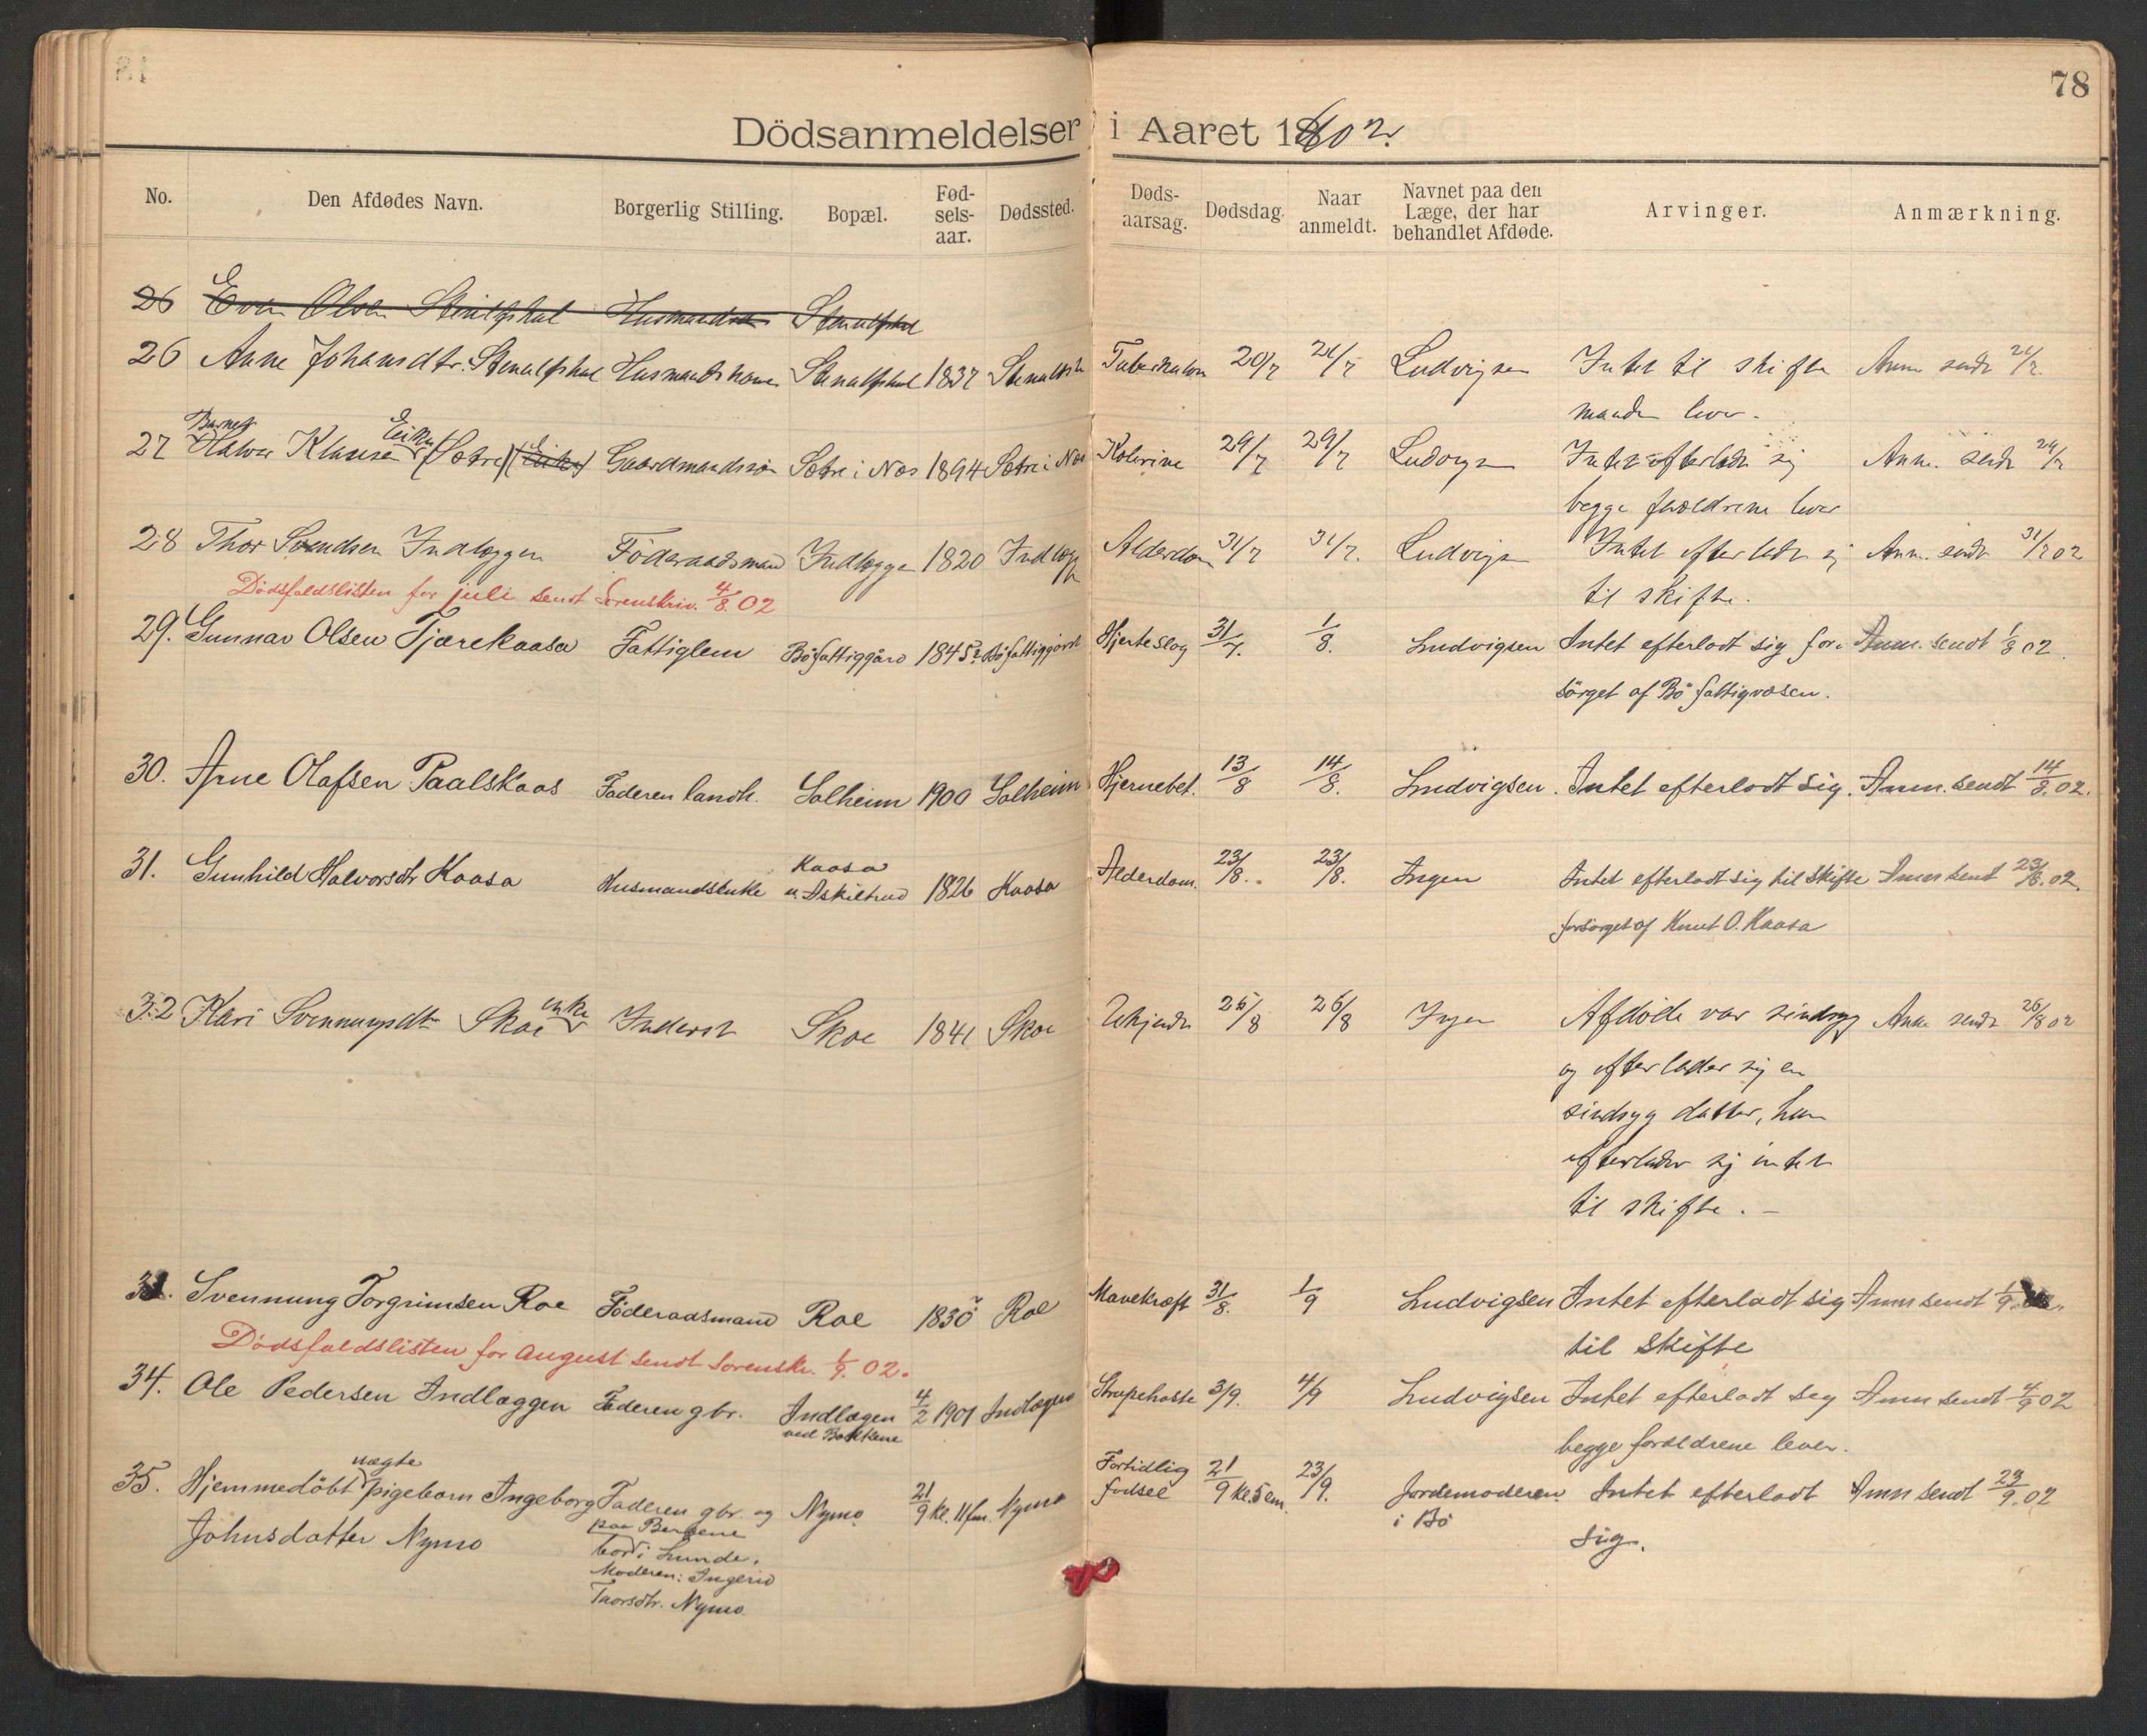 78
Dödsanmeldelser i Aaret 1902.
No. Den Afdødes Navn. Borgerlig Stilling. Bopæl. Fød-sels-aar. Dødssted. Døds-aarsag. Dødsdag. Naar anmeldt. Navnet paa den Læge, der har behandlet Afdøde. Arvinger. Anmærkning.
26 Even Olsen
26 Anne Johansdtr. Stenulfshul Husmandskone Stenulfshul 1837 20/7 21/7 Ludvigsen Intet til skifte Anm sendt 21/7.
manden lever.
Barnet
27 Halvor Klausen Eika (Sotre) Gaardmandssøn Sotre i Nes 1894 Sotre i Nes Kolerine 29/7 29/7 Ludvigsen Intet efterladt sig Anm. sendt 29/7
begge forældrene lever
28 Thor Svendsen Indlæggen Föderaadsmand Indlæggen 1820 Indlægg Alderdom 31/7 31/7. Ludvigsen Intet efterladt sig Anm. sendt 31/7 02
til skifte.
Dödsfaldslisten for juli sendt Sorenskriv. 4/8. 02
29. Gunnar Olsen Tjærekaasa Fattiglem Böfattiggård 1845 Böfattiggård Hjerteslag 31/7. 1/8. Ludvigsen Intet efterladt sig for- Anm. sendt 1/8 02.
sörget af Bö fattigvæsen.
30. Arne Olafsen Paalskaas Faderen landh. Solheim 1900 Solheim Hjernebet. 13/8 14/8. Ludvigsen. Intet efterladt sig. Anm. sendt 14/8. 02.
31. Gunhild Halvorsdtr Kaasa Husmandsenke Kaasa u. Askiltrud 1826 Kaasa Alderdom. 23/8. 23/8. Ingen Intet efterladt sig til skifte Anm sendt 23/8. 02.
forsörget af Knut O. Kaasa
32 Kari Svennungsdtr Skoe enke Inderst Skoe 1841 Skoe Ukjendt 25/8 26/8 Ingen Afdöde var sindsyg Anm sendt 26/8 02
og efterlader sig en
sindsyg datter, hun
efterlader sig intet
til skifte. –
33. Svennung Torgrimsen Roe Föderaadsmand Roe 1830 Roe Mavekræft 31/8. 1/9 Ludvigsen Intet efterladt sig Anm sendt 1/9
til skifte
Dödsfaldslisten for August sendt Sorenskr. 1/9. 02.
34. Ole Pedersen Indlæggen Faderen gbr. Indlægen ved Bakkene 4/2 1901 Indlægen Strupehoste 3/9. 4/9 Ludvigsen Intet efterladt sig Anm sendt 4/9 02
begge forældrene lever.
35. Hjemmedöbt uægte pigebarn Ingeborg Faderen gbr. og Nymo 21/9 kl. 11 fm. Nymo Fortidlig födsel 21/9 kl. 5 em. 23/9. Jordemoderen i Bö Intet efterladt Anm sendt 23/9. 02
Johnsdatter Nymo paa Bergene sig.
bor i Lunde.
Moderen: Ingerid
Taorsdtr. Nymo.